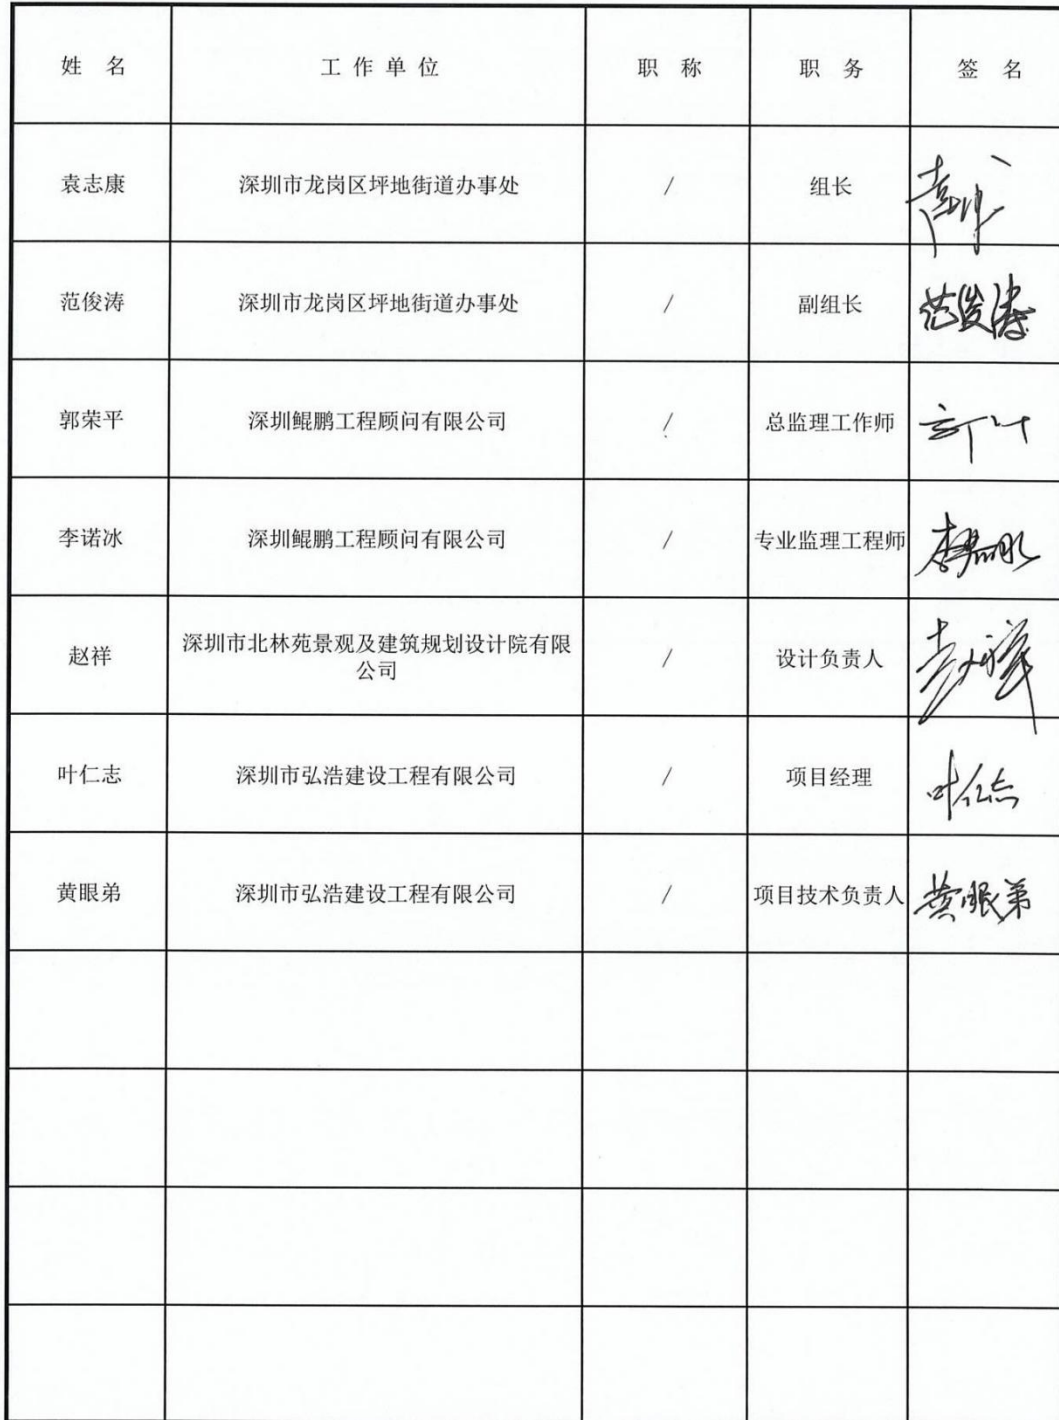 姓 名 工 作 单 位 职 称 职 务 签 名
袁志康 深圳市龙岗区坪地街道办事处 / 组长
范俊涛 深圳市龙岗区坪地街道办事处 / 副组长 范俊涛
郭荣平 深圳鲲鹏工程顾问有限公司 / 总监理工作师
李诺冰 深圳鲲鹏工程顾问有限公司 / 专业监理工程师 李诺冰
赵祥 深圳市北林苑景观及建筑规划设计院有限
公司 / 设计负责人 赵祥
叶仁志 深圳市弘浩建设工程有限公司 / 项目经理 叶仁志
黄眼弟 深圳市弘浩建设工程有限公司 / 项目技术负责人 黄眼弟